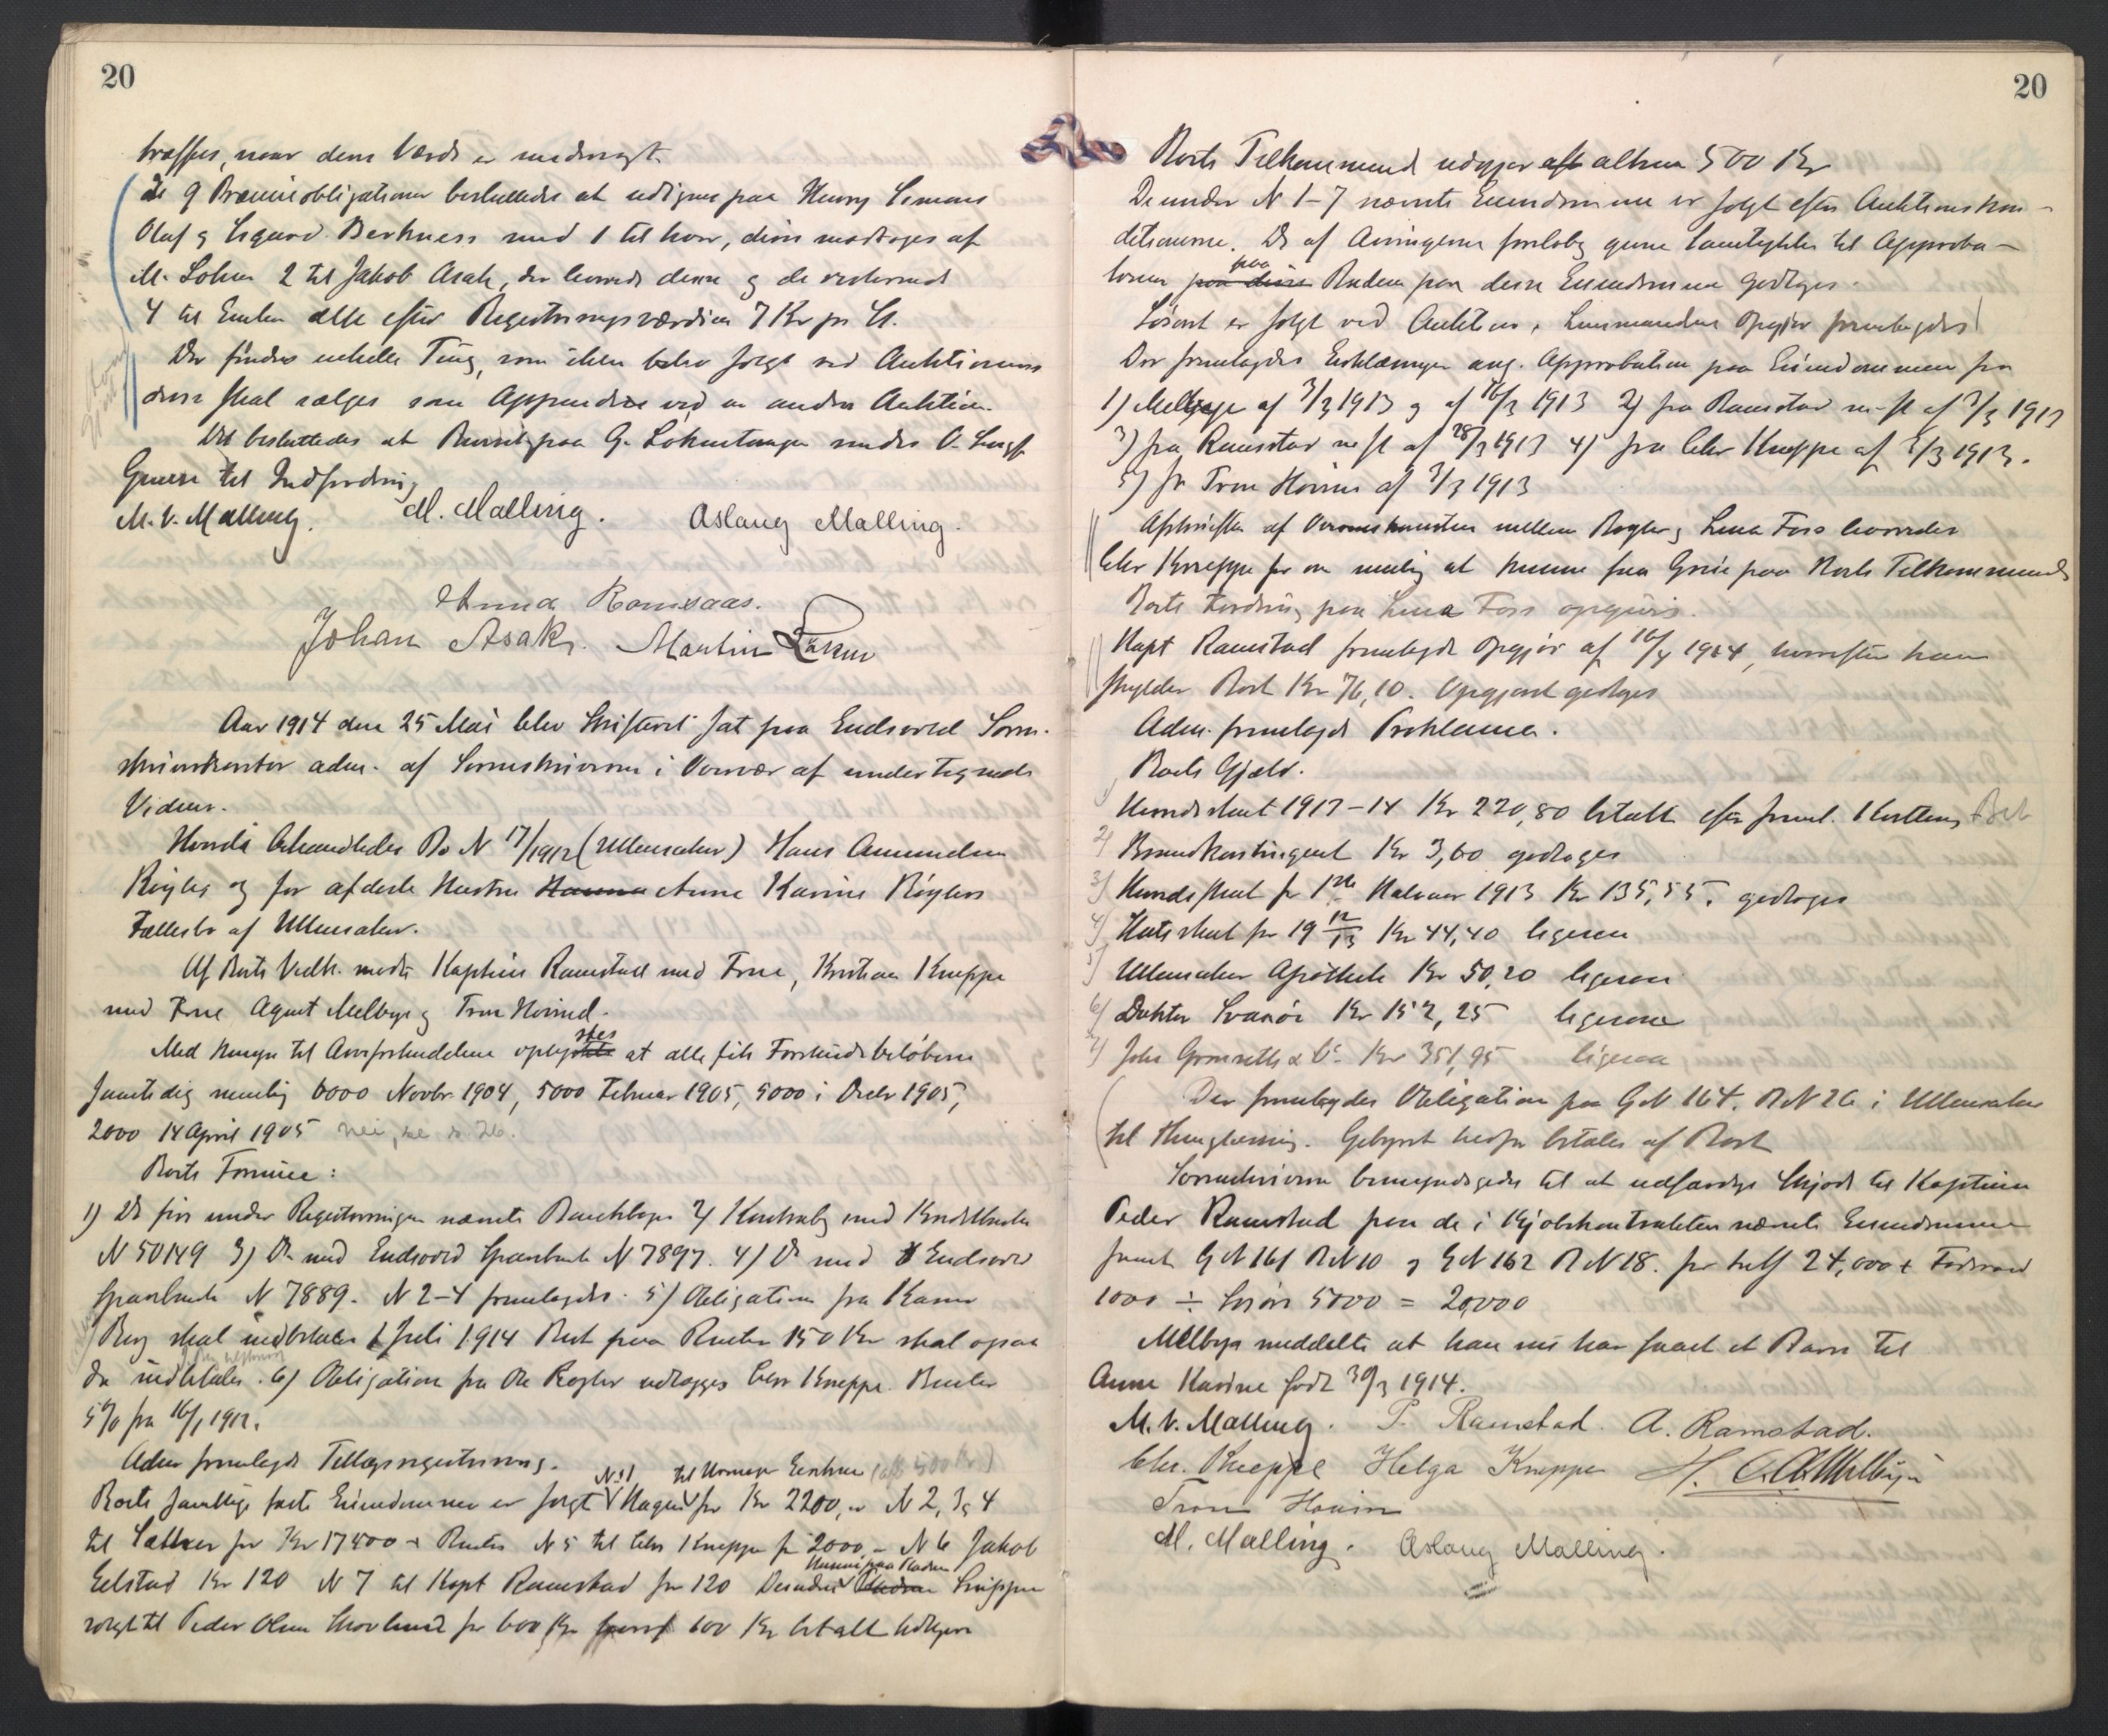 20
træffes, naar dens Værdi er undersøgt.
De 9 Præmieobligationer besluttedes at udlignes paa Henry Simens
Olaf og Sigurd Berkness med 1 til hver, disse modtoges af
M. Løken 2 til Jakob Asak, der leveredes denne og de resterende
4 til Enken alle efter Registreringsværdien 7 Kr pr St.
Der findes enkelte Ting, som ikke blev solgt ved Auktionen
disse skal sælges som Appendix ved en anden Auktion.
Det besluttedes at paa G. Lokentangen sendes O.
til Indfordring
M. V. Malling. M. Malling. Aslaug Malling.
Anna Romsaas.
Johan Asak. Martin Løken
Aar 1914 den 25 Mai blev Skifteret sat paa Eidsvold Soren-
skriverkontor adm. af Sorenskriveren i Overvær af undertegnede
Vidner.
Hvorda behandledes Bo N 17/1912 (Ullensaker) Hans Amundsen
Røgler og for afdøde Hustru Hanna Anne Karine Røglers
Fællesbo af Ullensaker.
Af Boets Vedk. mødte Kaptein Ramstad med Frue, Kristian Kneppe
med Frue Agent Melbye og Tron Hovind.
Med Hensyn til Arveforskudene oplystes at alle fik Forskudsbeløbene
samtidig nemlig 6000 Novbr 1904, 5000 Februar 1905, 5000 i Decbr 1905,
2000 14 April 1905 nei, se s. 26.
Boets Formue:
1) De før under Registreringen nævnte Bankbøger 2) Kontrabog med Kreditbanken
N 50149 3) Do med Eidsvold Sparebank N 7897. 4) Do med Eidsvold
Sparebank N 7889. N 2-4 fremlagdes. 5) Obligation fra Karen
Berg skal indbetales 1 Juli 1914 Rest paa Renter 150 Kr skal ogsaa
da indbetales. 6) Obligation fra Ole Røgler udlægges Chr. Kneppe. Renter
5% fra 16/1 1912.
Adm fremlagde Tillægsregistrering.
N: 1 til Enken (afb 500 Kr)
Boets samtlige faste Eiendomme er solgt Hagen for Kr 2200, N 2, 3 og 4
til Sætter for Kr 17400 + Renter N 5 til Chr Kneppe for 2000,- N 6 Jakob
Eilstad Kr 120 N 7 til Kapt Ramstad for 120 Desuden
solgt til Peder Olsen for 600 Kr 600 Kr betalt
20
Boets Tilkommende udgjør alt altsaa 500 Kr
De under N 1-7 nævnte Eiendomme er solgt efter Auktionskon-
ditionerne. De af Arvingerne foreløbig givne Samtykker til Approba-
tionen paa disse paa Budene paa disse Eiendomme godtoges.
Løsøret er solgt ved Auktion, Lensmandens Opgjør fremlagdes
Der fremlagdes Erklæringer ang. Approbation paa Eiendommene fra
1) Melbye af 3/3 1913 og af 16/3 1913 2) fra Ramstad m. fl af 3/3 1913
3) fra Ramstad m fl af 28/3 1913 4) fra Chr Kneppe af 5/3 1913.
5) fr Tron Hovind af 3/3 1913
Afskriften af Overenskomsten mellem Røgler og Lena Foss leveredes
Chr Kneppe for om mulig at kunne faa Greie paa Boets Tilkommende
Boets Fordring paa Lena Foss opgives.
Kapt Ramstad fremlagde Opgjør af 16/4 1914, hvorefter han
skylder Boet Kr 76,10. Opgjøret godtoges
Adm. fremlagde Proklama.
Boets Gjæld.
1) Herredsskat 1913-14 Kr 220,80 betalt efter freml. Kvittering Bet
2) Brandkontingent Kr 3,60 godtoges
3) Herredsskat for 1ste Halvaar 1913 Kr 135,55. godtoges
4) Statsskat for 19 12/13 Kr 44,40 ligesaa
5) Ullensaker Apothek Kr 50,20 ligesaa
6) Doktor Svanøe Kr 152,25 ligesaa
7) Johs Grønseth & Co. Kr 351,95 ligesaa
Der fremlagdes Obligation paa G.N 164. B.N 26 i Ullensaker
til Thinglæsning. Gebyret herfor betales af Boet
Sorenskriveren bemyndigedes til at udfærdige Skjøde til Kaptein
Peder Ramstad paa de i Kjøbekontrakten nævnte Eiendomme
samt G.N 161 B.N 10 og G.N 162 B.N 18. for tils 24,000 + Føderaad
1000 ÷ Løsøre 5000 = 20,000
Melbye meddelte at han nu har faaet et Barn til
Anne Karine født 30/3 1914.
M. V. Malling. P. Ramstad. A. Ramstad.
Chr. Kneppe Helga Kneppe H. C. A. Melbye
Tron Hovin
M. Malling. Aslaug Malling.